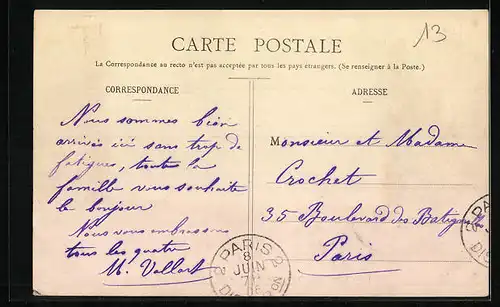 13
CARTE POSTALE
La Correspondance au recto n'est pas acceptée par tous les pays étrangers. (Se renseigner à la Poste.)
CORRESPONDANCE
Nous sommes bien
arrivés ici sans trop de
fatigues, toute la
famille vous souhaite
le bonjour
Nous vous embrassons
tous les quatre
ADRESSE
Monsieur et Madame
Crochet
35 Boulevard des Batignolles
Paris
PARIS
8
JUIN
PA